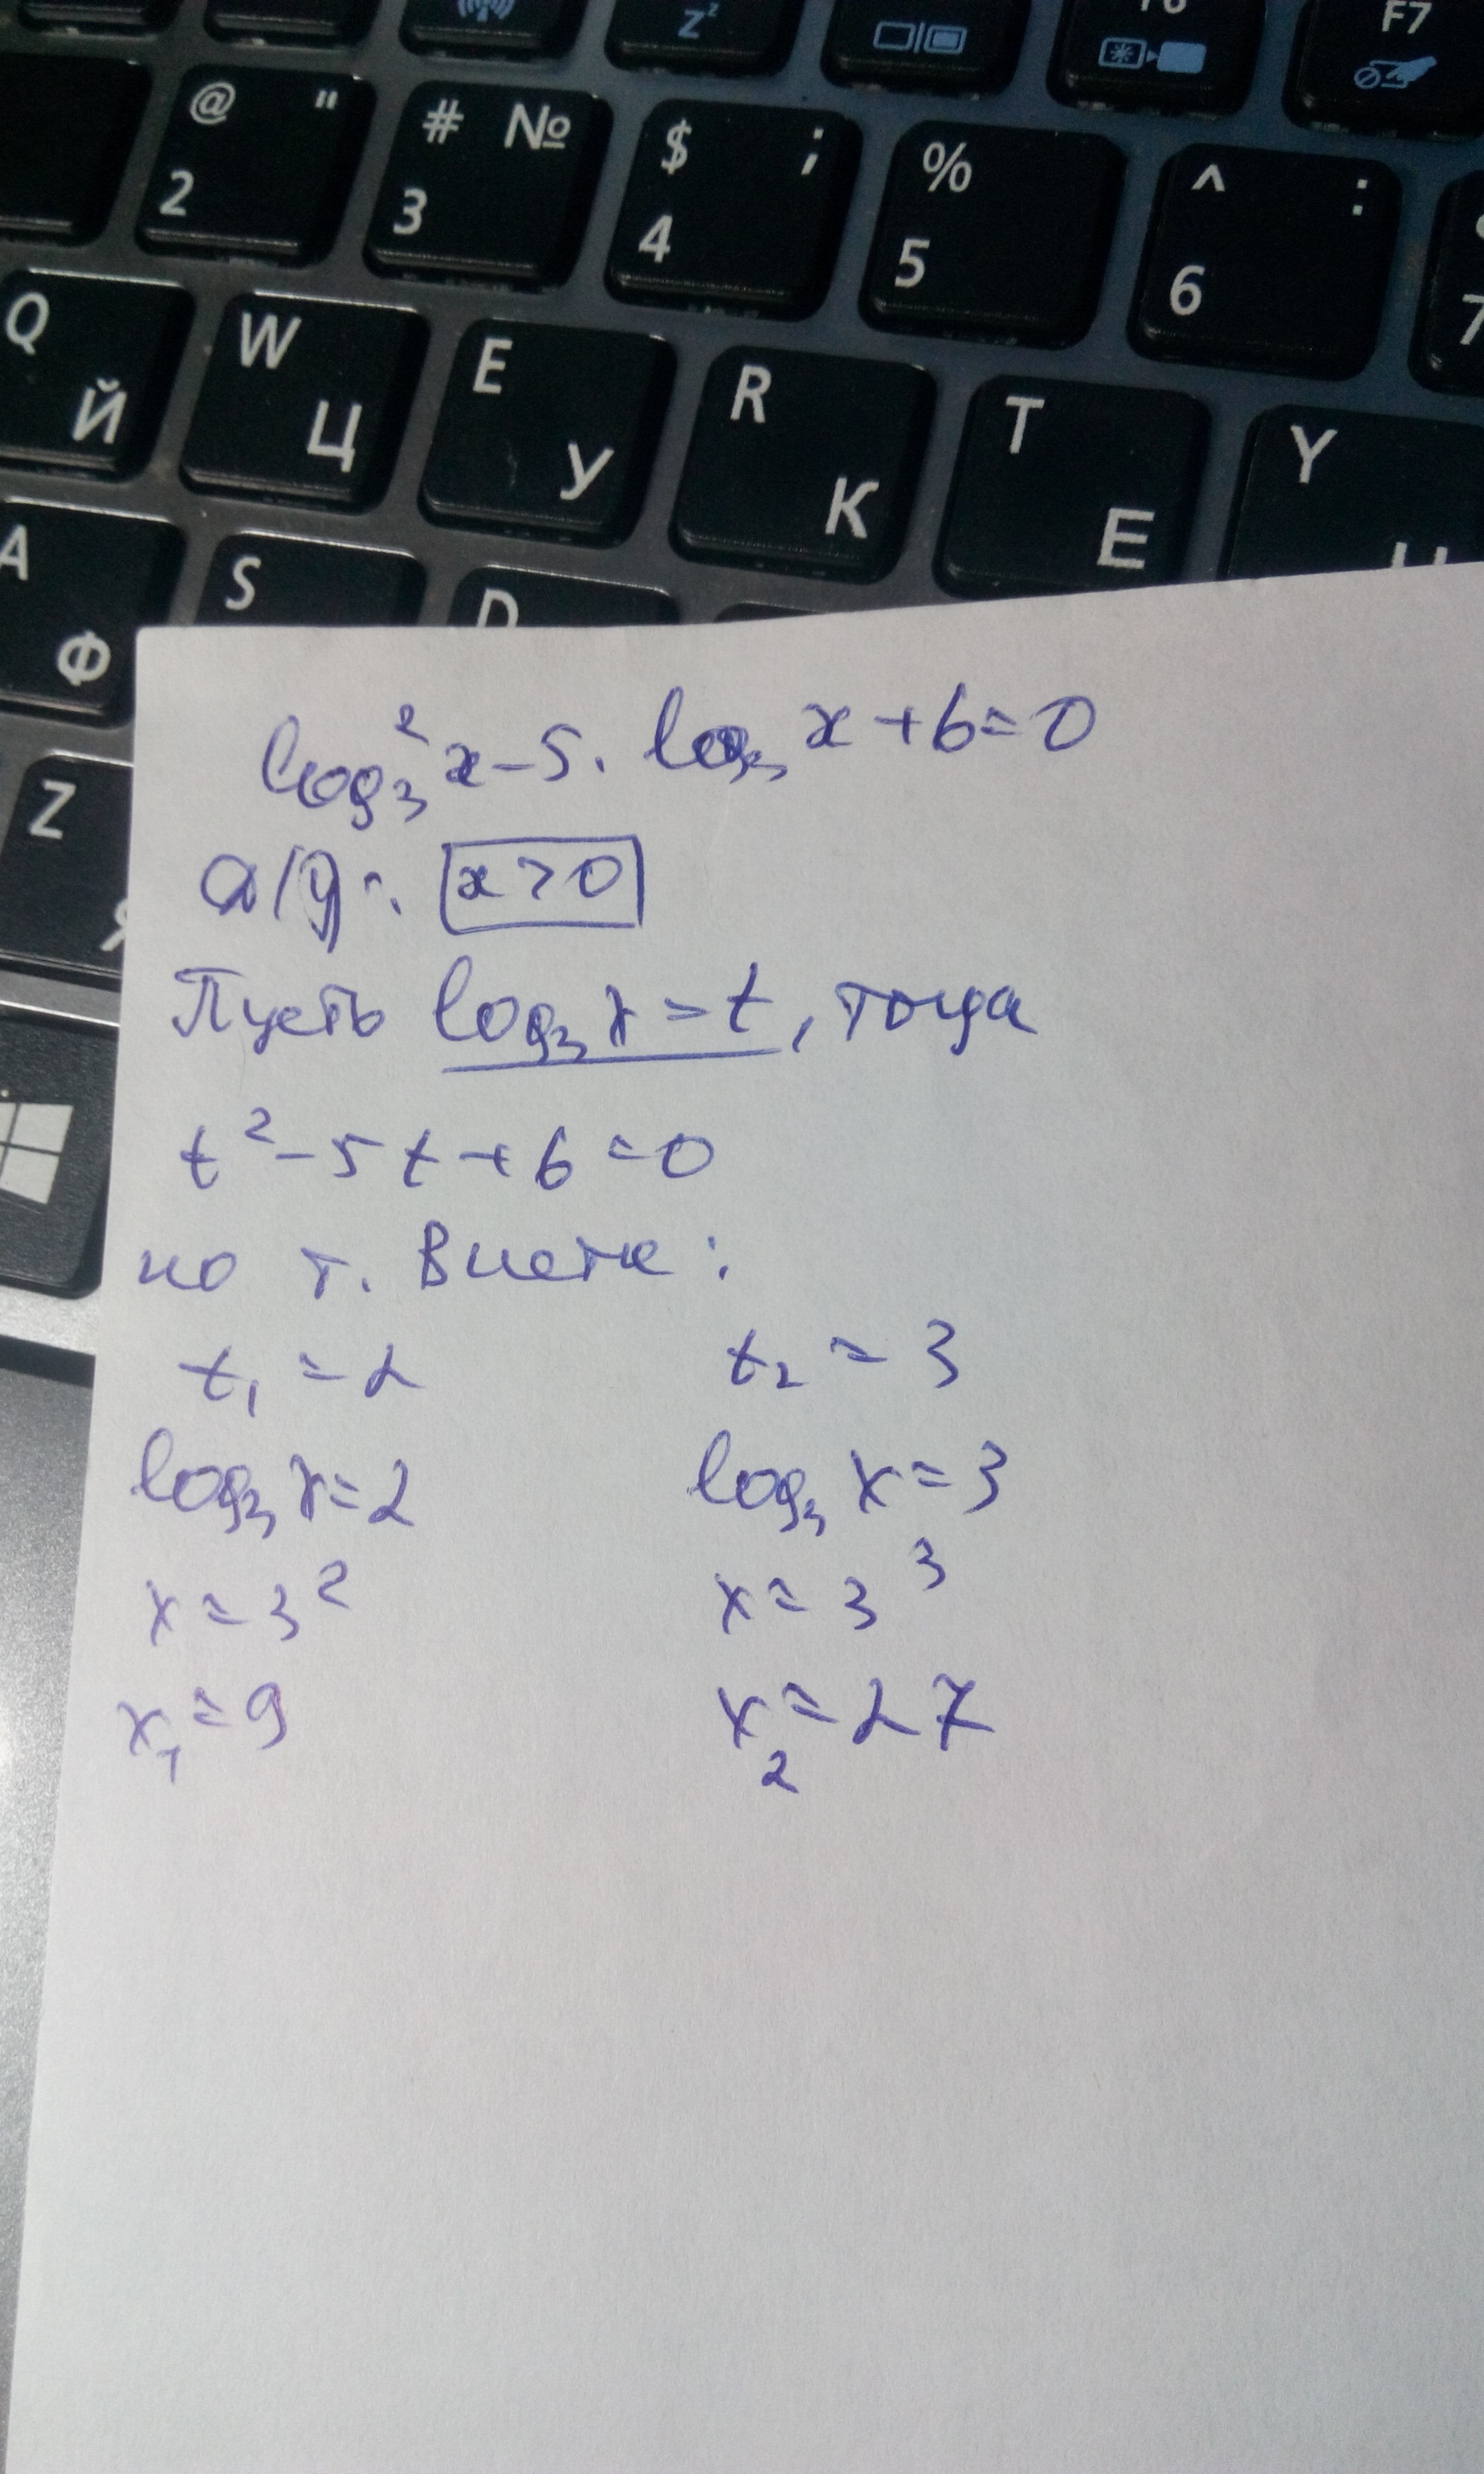 F7
@ "
2
# №
3
$ ;
4
%
5
^ :
6
7
Q Й
W Ц
E У
R К
T Е
Y
A Ф
S
D
Z
log₃²x-5·log₃x+6=0
x>0
Пусть log₃x=t, тогда
t²-5t+6=0
по т. Виета:
t₁=2 t₂=3
log₃x=2 log₃x=3
x=3² x=3³
x₁=9 x₂=27